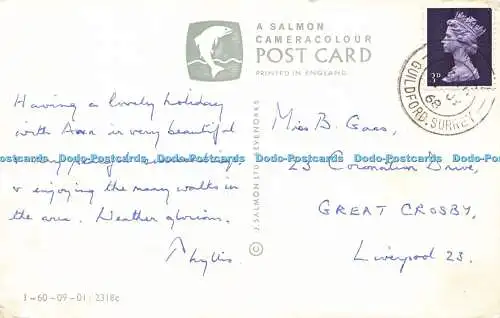 A SALMON
CAMERACOLOUR
POST CARD
PRINTED IN ENGLAND
3D
GUILDFORD. SURREY
68
Having a lovely holiday
with Ann in very beautiful
& enjoying the many walks in
the area. Weather glorious.
Phyllis.
J. SALMON LTD., SEVENOAKS
©
Miss B. Gass,
23 Coronation Drive,
GREAT CROSBY,
Liverpool 23.
Dodo-Postcards Dodo-Postcards Dodo-Postcards Dodo-Postcards Dodo-Postcards Dodo-Postcards
1-60-09-01 : 2318c